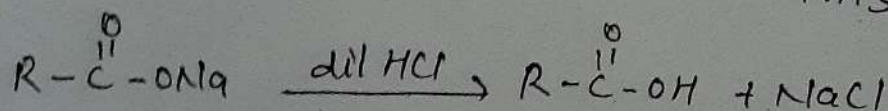 O O
R - C - ONa dil HCl → R - C - OH + NaCl